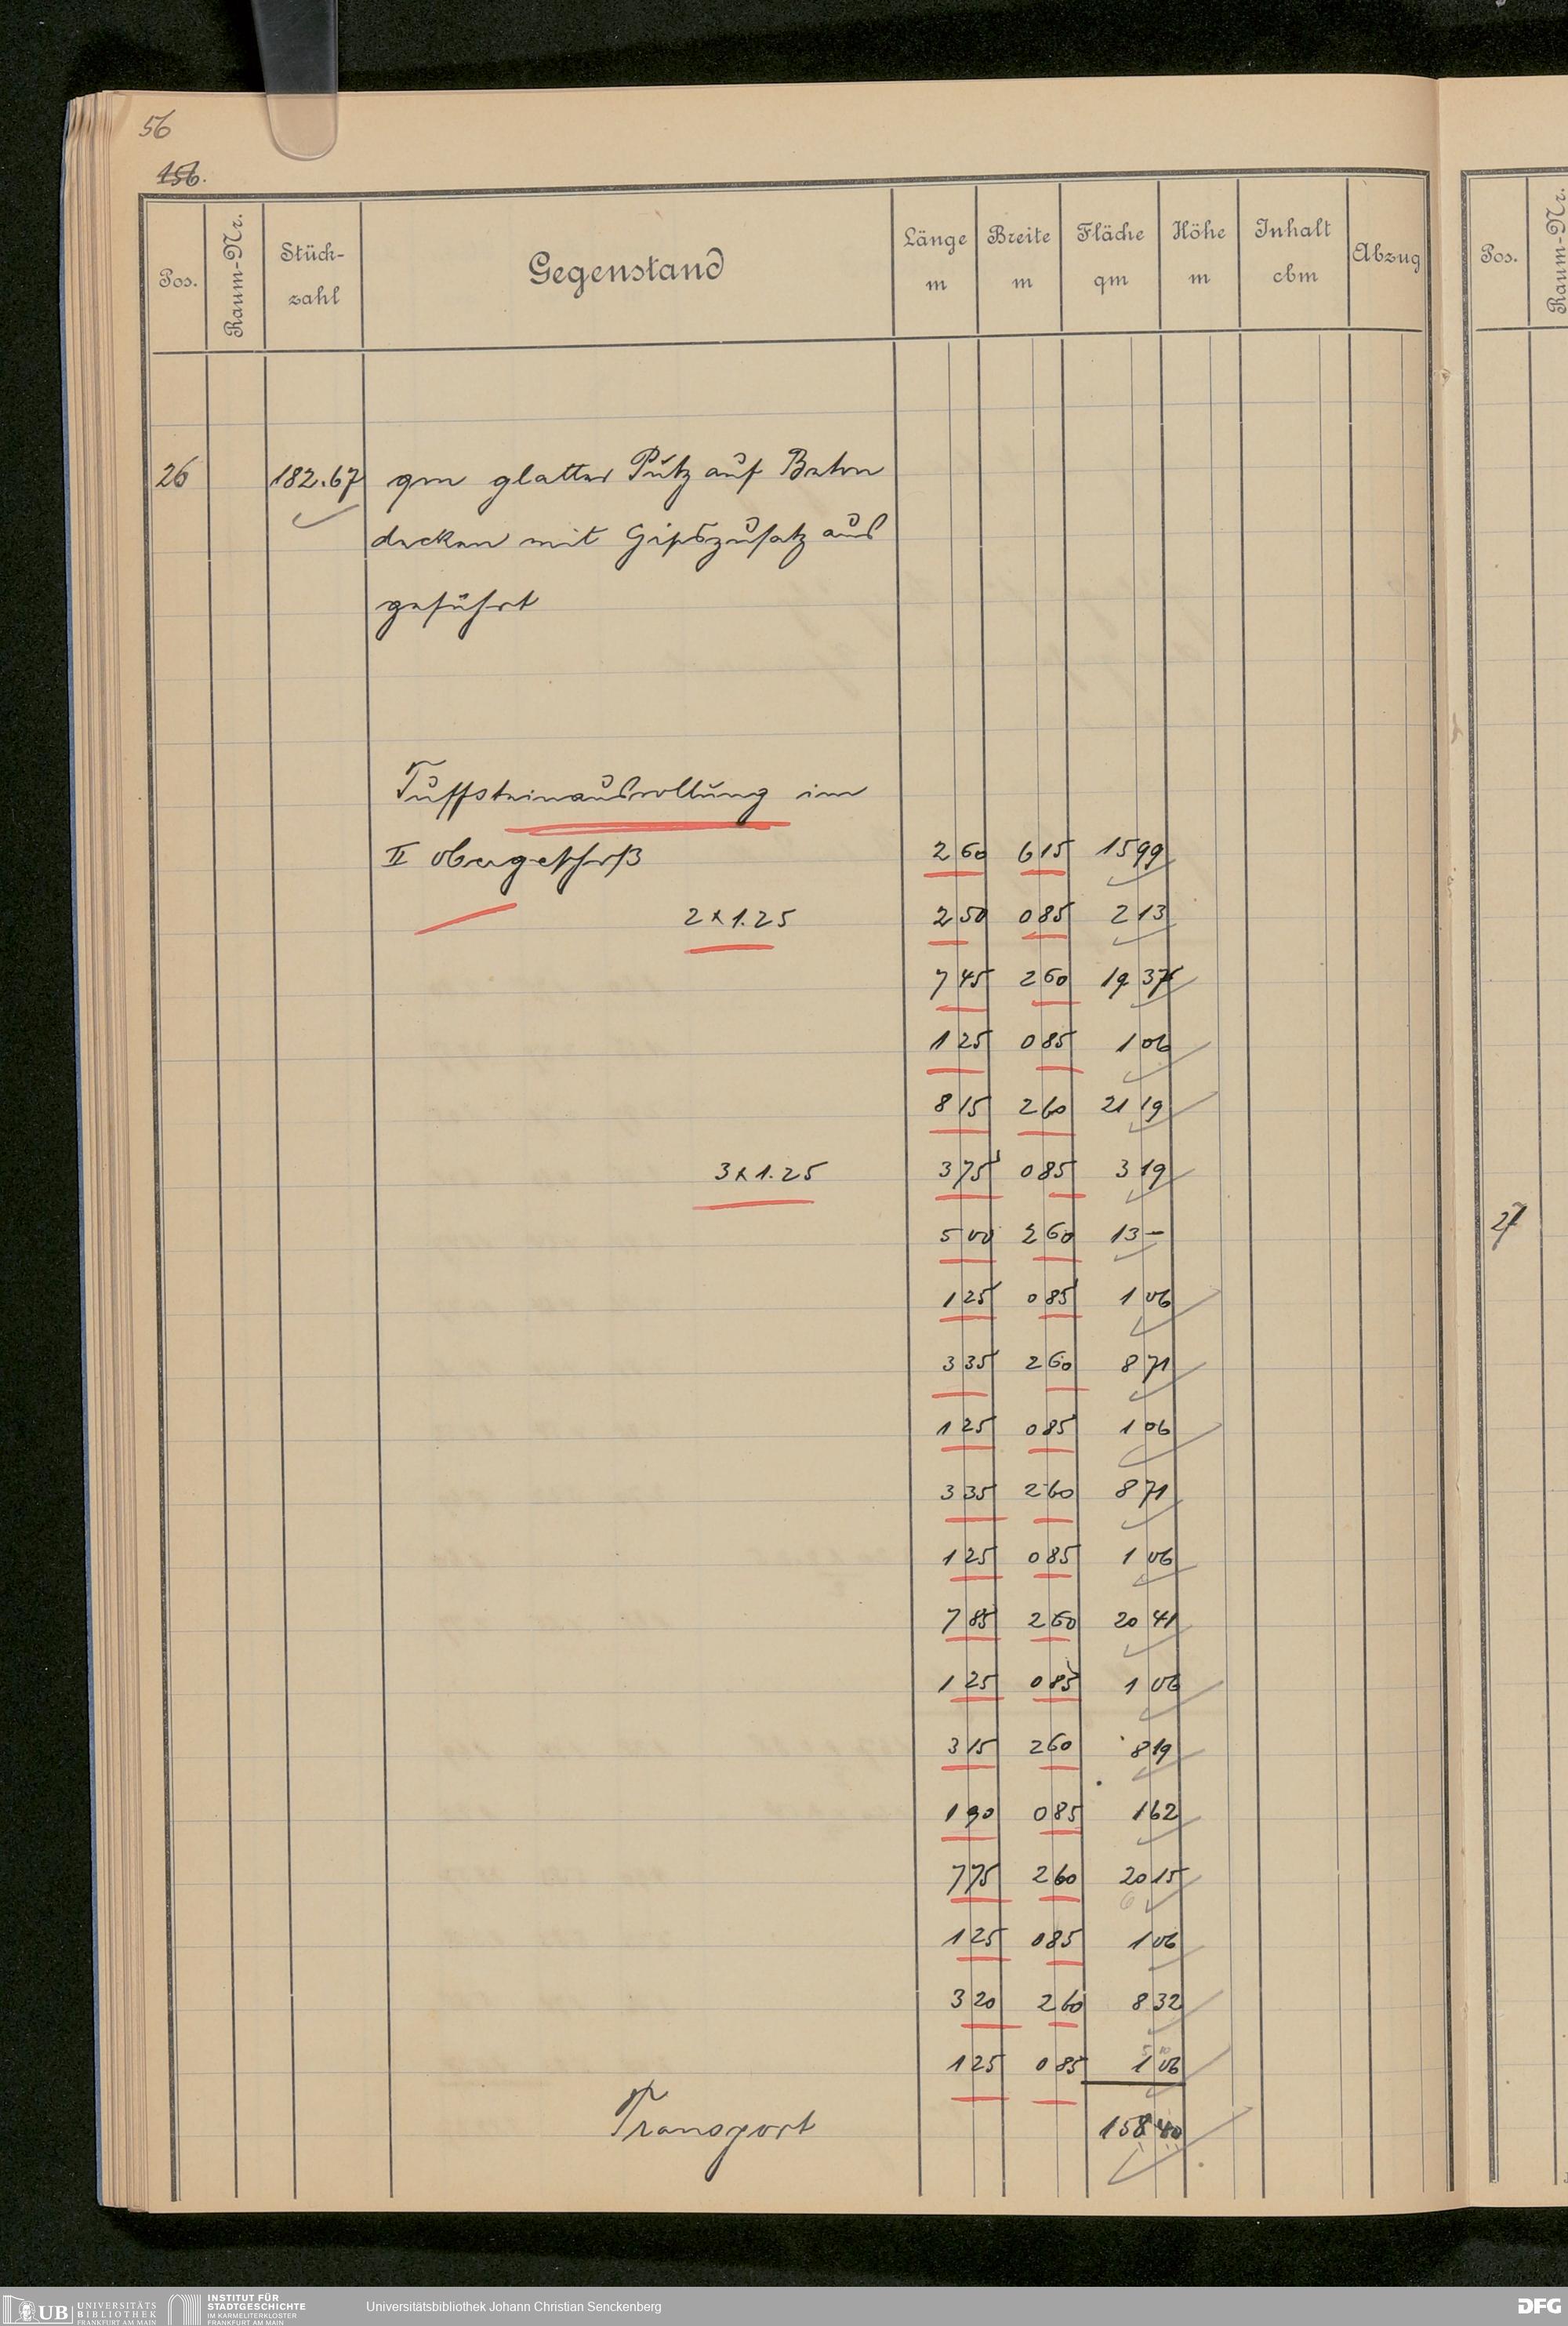 56
156.
Pos. Raum-Nr. Stück-zahl Gegenstand Länge m Breite m Fläche qm Höhe m Inhalt cbm Abzug Pos. Raum-Nr.
26 182.67 qm glatter Putz auf Beton
decken mit Gipszusatz aus
geführt
Tuffsteinausrollung im
II Obergeschoß 2 60 6 15 15 99
2 x 1.25 2 50 0 85 2 13
7 45 2 60 19 37
1 25 0 85 1 06
8 15 2 60 21 19
3 x 1.25 3 75 0 85 3 19
27
5 00 2 60 13 –
1 25 0 85 1 06
3 35 2 60 8 71
1 25 0 85 1 06
3 35 2 60 8 71
1 25 0 85 1 06
7 85 2 60 20 41
1 25 0 85 1 06
3 15 2 60 8 19
1 90 0 85 1 62
7 75 2 60 20 15
1 25 0 85 1 06
3 20 2 60 8 32
1 25 0 85 1 06
Transport 158 40
UB UNIVERSITÄTS BIBLIOTHEK FRANKFURT AM MAIN
INSTITUT FÜR STADTGESCHICHTE IM KARMELITERKLOSTER FRANKFURT AM MAIN
Universitätsbibliothek Johann Christian Senckenberg
DFG